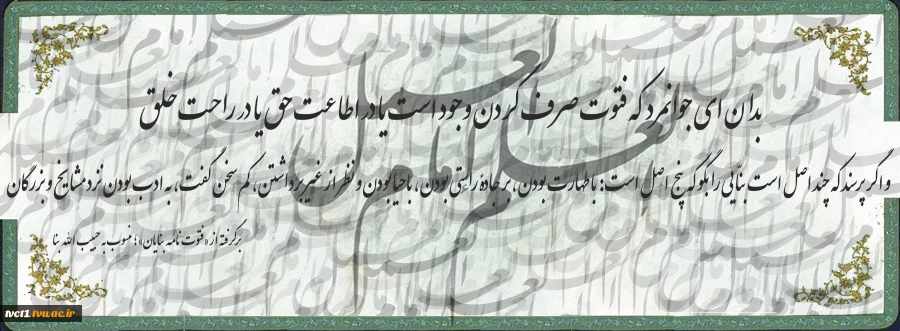 بدان ای جوانمرد که فتوت صرف کردن وجود است یا در اطاعت حق یا در راحت خلق
و اگر پرسند که چند اصل است بنّایی را بگو که پنج اصل است: با طهارت بودن، بر جادهٔ راستی بودن، با حیا بودن و نظر از غیر برداشتن، کم سخن گفت، به ادب بودن نزد مشایخ و بزرگان
برگرفته از «فتوت نامه بنایان»؛ منسوب به حبیب الله بنا
tvct1.tvu.ac.ir